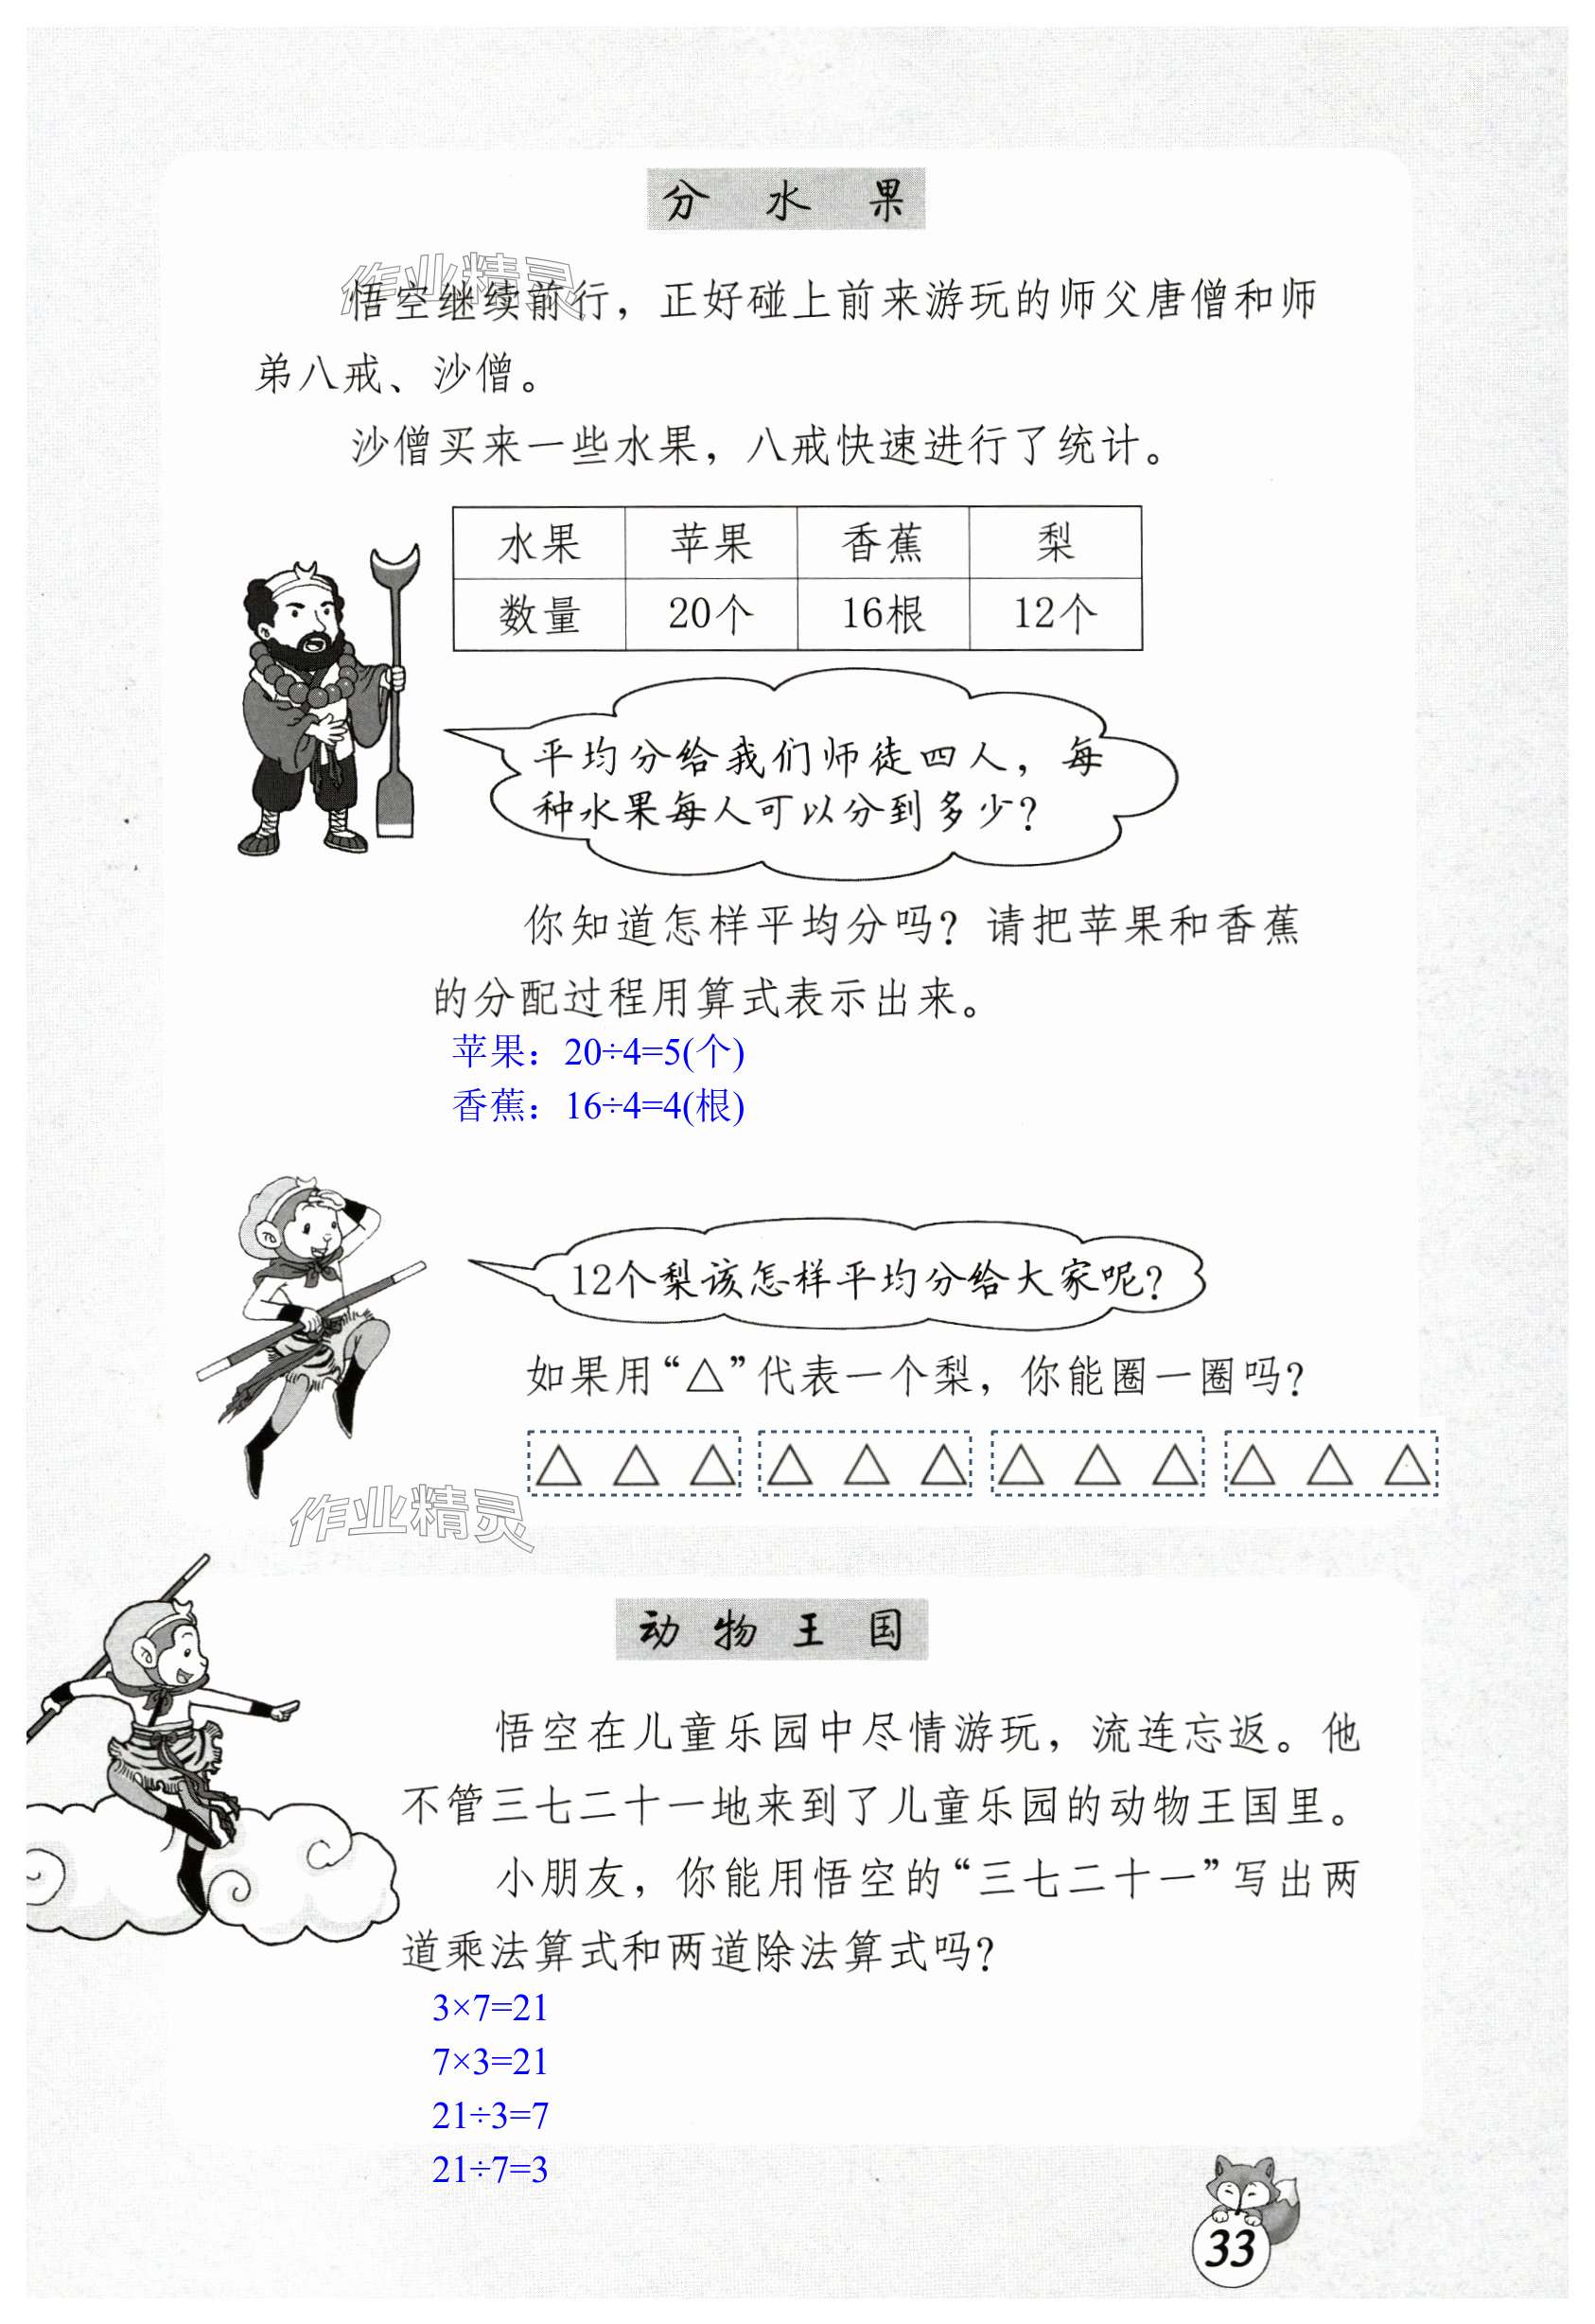 分 水 果
作业精灵
悟空继续前行，正好碰上前来游玩的师父唐僧和师
弟八戒、沙僧。
沙僧买来一些水果，八戒快速进行了统计。
水果 苹果 香蕉 梨
数量 20个 16根 12个
平均分给我们师徒四人，每
种水果每人可以分到多少？
你知道怎样平均分吗？请把苹果和香蕉
的分配过程用算式表示出来。
苹果：20÷4=5(个)
香蕉：16÷4=4(根)
12个梨该怎样平均分给大家呢？
如果用“△”代表一个梨，你能圈一圈吗？
△ △ △ △ △ △ △ △ △ △ △ △
作业精灵
动 物 王 国
悟空在儿童乐园中尽情游玩，流连忘返。他
不管三七二十一地来到了儿童乐园的动物王国里。
小朋友，你能用悟空的“三七二十一”写出两
道乘法算式和两道除法算式吗？
3×7=21
7×3=21
21÷3=7
21÷7=3
33